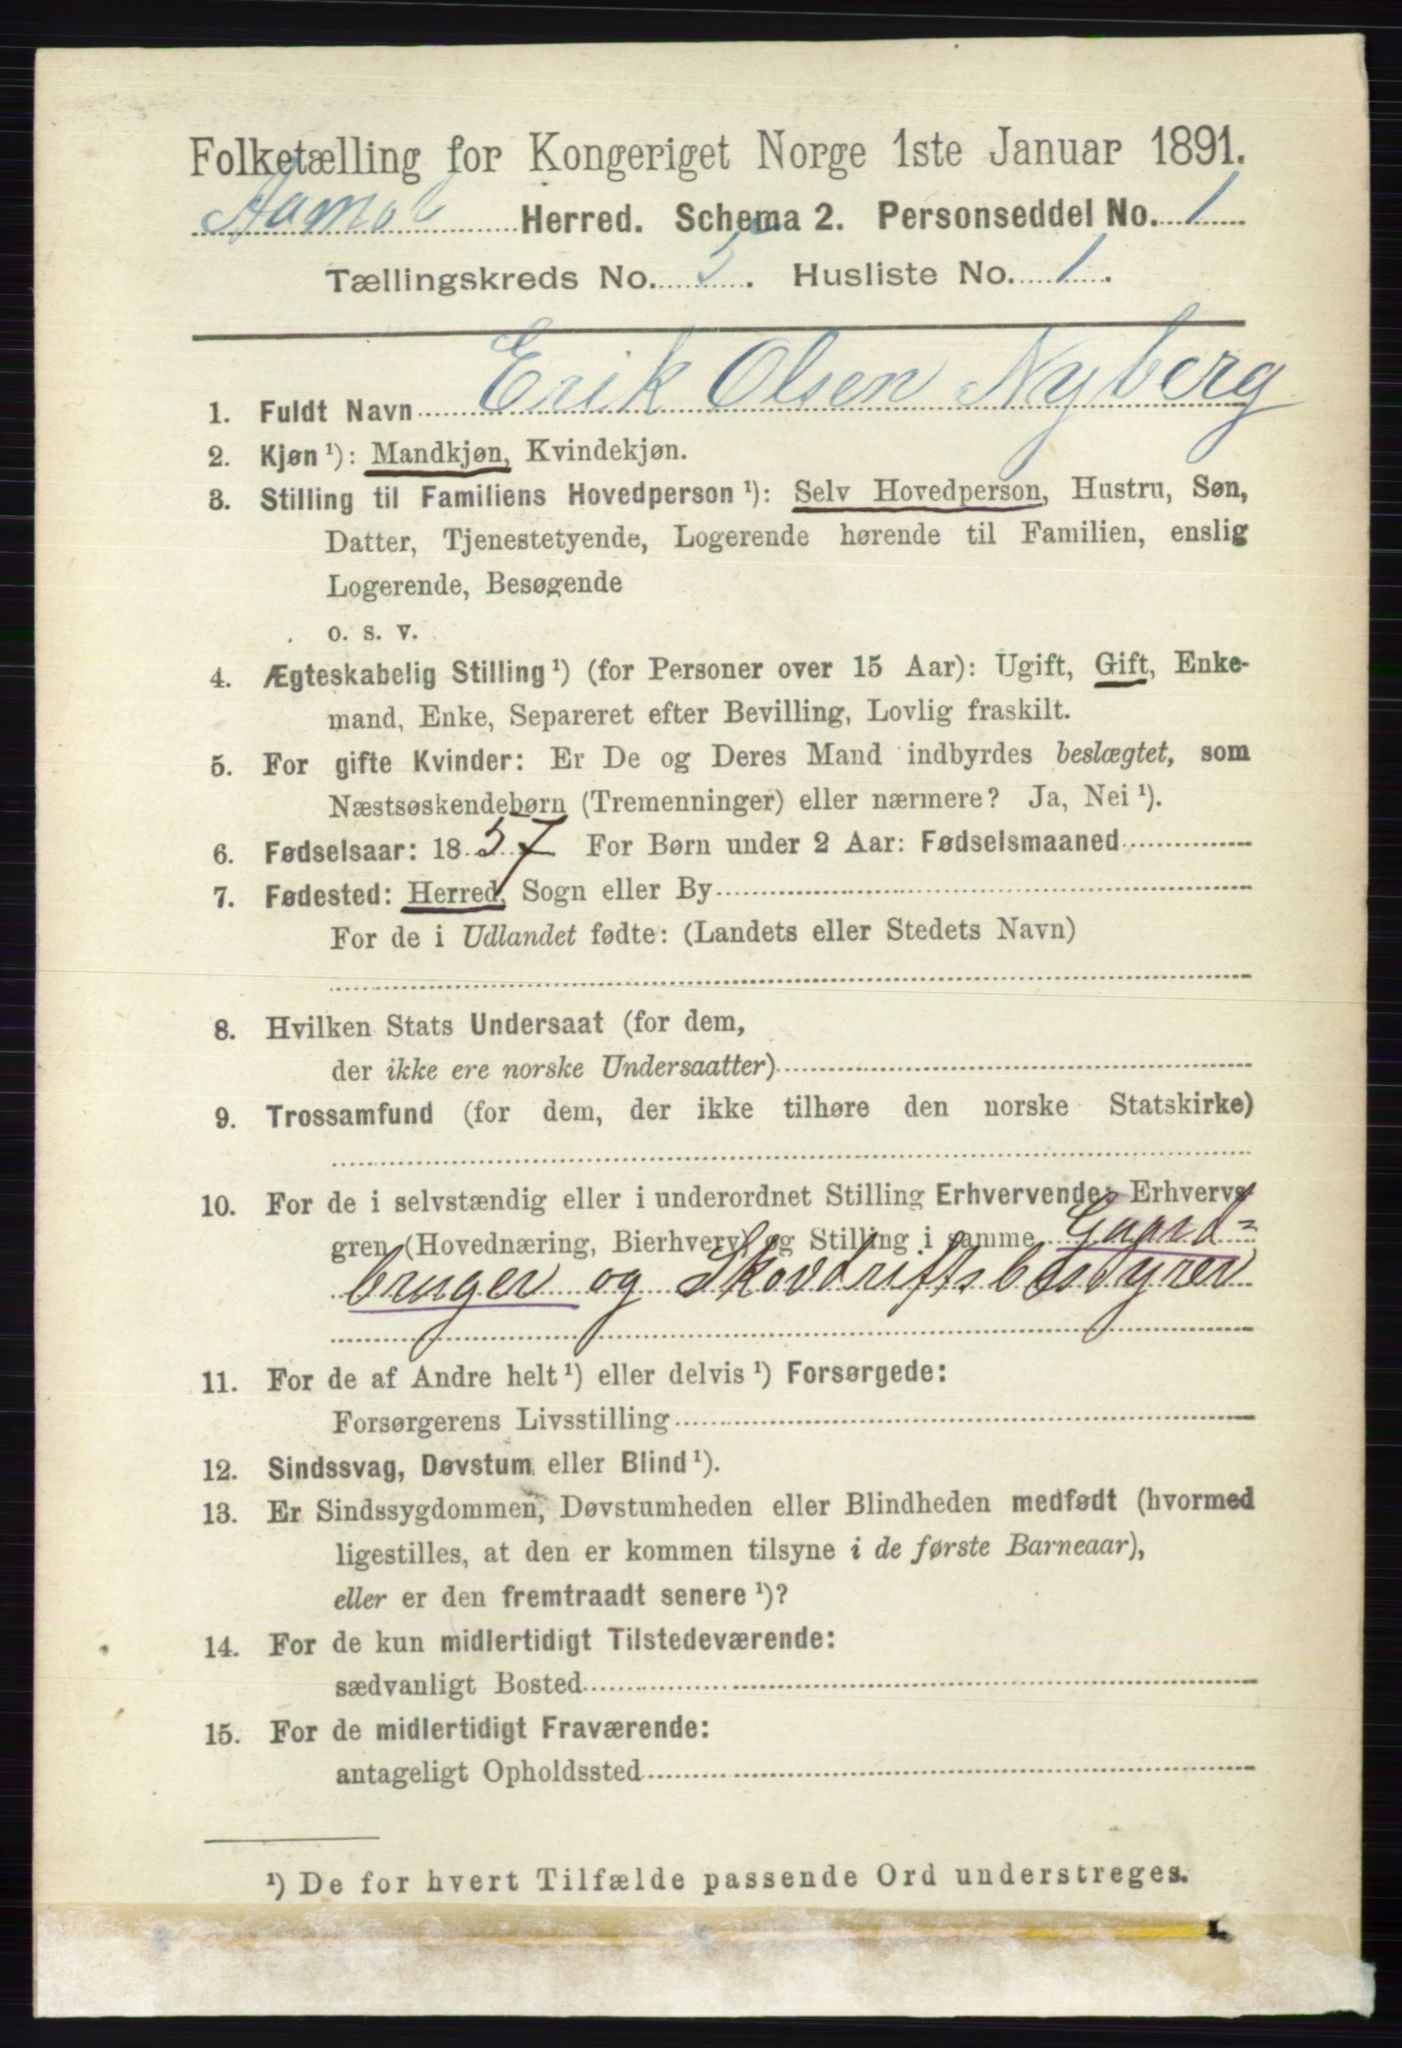 Folketælling for Kongeriget Norge 1ste Januar 1891.
Aamot Herred. Schema 2. Personseddel No. 1
Tællingskreds No. 5. Husliste No. 1.
1. Fuldt Navn Erik Olsen Nyberg
2. Kjøn ¹): Mandkjøn, Kvindekjøn.
3. Stilling til Familiens Hovedperson ¹): Selv Hovedperson, Hustru, Søn,
Datter, Tjenestetyende, Logerende hørende til Familien, enslig
Logerende, Besøgende
o. s. v.
4. Ægteskabelig Stilling ¹) (for Personer over 15 Aar): Ugift, Gift, Enke-
mand, Enke, Separeret efter Bevilling, Lovlig fraskilt.
5. For gifte Kvinder: Er De og Deres Mand indbyrdes beslægtet, som
Næstsøskendebørn (Tremenninger) eller nærmere? Ja, Nei ¹).
6. Fødselsaar: 1857 For Børn under 2 Aar: Fødselsmaaned
7. Fødested: Herred, Sogn eller By
For de i Udlandet fødte: (Landets eller Stedets Navn)
8. Hvilken Stats Undersaat (for dem,
der ikke ere norske Undersaatter)
9. Trossamfund (for dem, der ikke tilhøre den norske Statskirke)
10. For de i selvstændig eller i underordnet Stilling Erhvervende: Erhvervs-
gren (Hovednæring, Bierhverv) og Stilling i samme Gaard=
bruger og Skovdriftsbestyrer
11. For de af Andre helt ¹) eller delvis ¹) Forsørgede:
Forsørgerens Livsstilling
12. Sindssvag, Døvstum eller Blind ¹).
13. Er Sindssygdommen, Døvstumheden eller Blindheden medfødt (hvormed
ligestilles, at den er kommen tilsyne i de første Barneaar),
eller er den fremtraadt senere ¹)?
14. For de kun midlertidigt Tilstedeværende:
sædvanligt Bosted
15. For de midlertidigt Fraværende:
antageligt Opholdssted
¹) De for hvert Tilfælde passende Ord understreges.